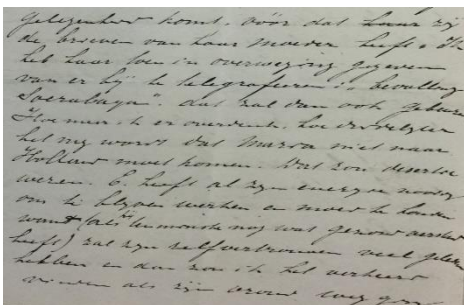 gelegenheid komt, vóór dat haar zij
de brieven van haar moeder heeft. Ik
heb haar toen in overweging gegeven
van er bij te telegrafeeren: "bevalling
Soerabaya". dat zal dan ook gebeuren
Hoe meer ik er overdenk, hoe duidelijker
het mij wordt dat niet naar
Holland moet komen. Dat zou desertie
wezen. C. heeft al zijn energie noodig
om te blijven werken en moed te houden
want (als nog wat gezond verstand
heeft) zal zijn zelfvertrouwen veel geleden
hebben en dan zou ik het verkeerd
vinden als zijn vrouw weg ging